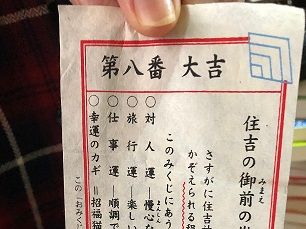 第八番 大吉
住吉の御前の
みまえ
さすがに住吉
かぞえられる
このみくじにあう
○対人運―慢心な
まんしん
○旅行運―楽しい
○仕事運―順調で
○幸運のカギ＝招福猫
この「おみく